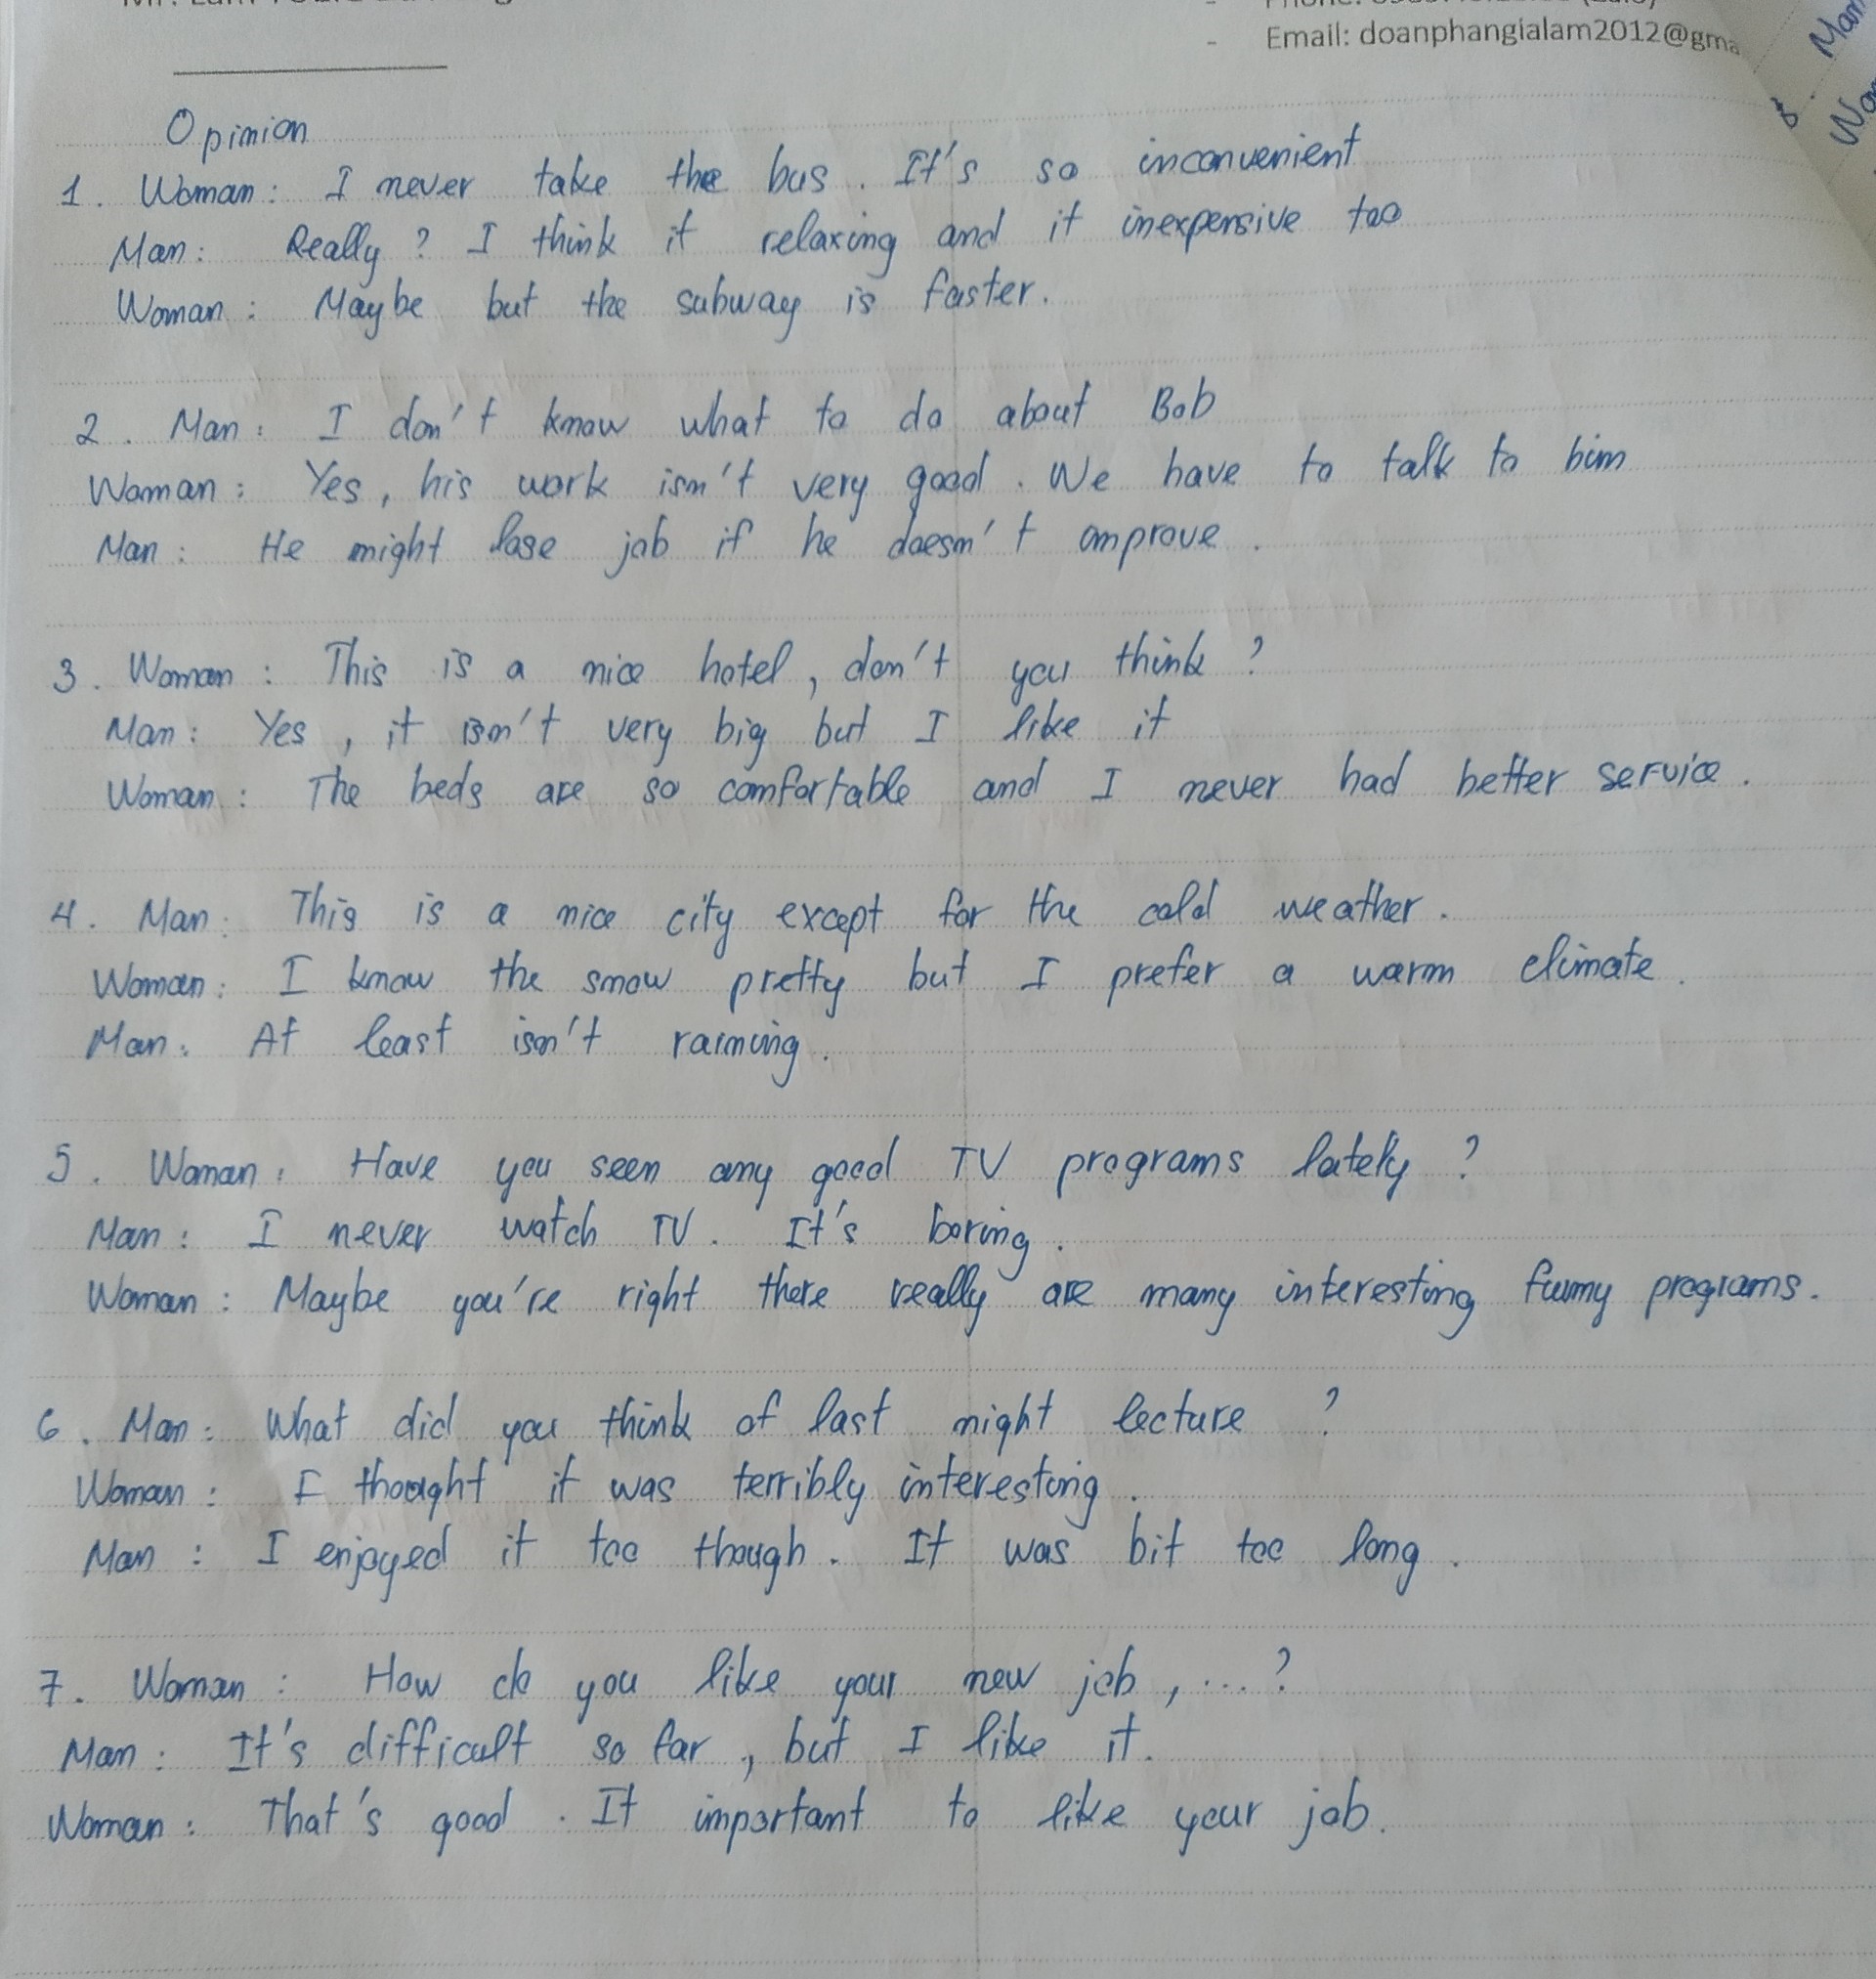 Opinion
1. Woman: I never take the bus. It's so inconvenient
Man: Really? I think it relaxing and it inexpensive too
Woman: Maybe but the subway is faster.
2. Man: I don't know what to do about Bob
Woman: Yes, his work isn't very good. We have to talk to him
Man: He might lose job if he doesn't improve.
3. Woman: This is a nice hotel, don't you think?
Man: Yes, it isn't very big but I like it
Woman: The beds are so comfortable and I never had better service.
4. Man: This is a nice city except for the cold weather.
Woman: I know the snow pretty but I prefer a warm climate.
Man: At least isn't raining.
5. Woman: Have you seen any good TV programs lately?
Man: I never watch TV. It's boring.
Woman: Maybe you're right there really are many interesting funny programs.
6. Man: What did you think of last night lecture?
Woman: I thought it was terribly interesting.
Man: I enjoyed it too though. It was bit too long.
7. Woman: How do you like your new job, ...?
Man: It's difficult so far, but I like it.
Woman: That's good. It important to like your job.
- Email: doanphangialam2012@gma
8
Man